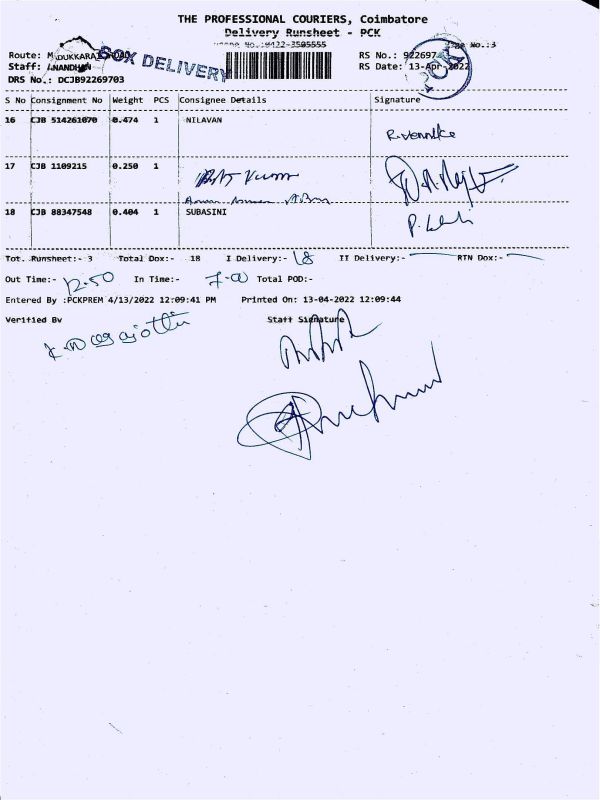 THE PROFESSIONAL COURIERS, Coimbatore
Delivery Runsheet - PCK
Phone No.:0422-3505555
Page No.:3
Route: RS No.: 922697
BOX DELIVERY
Staff: ANANDHAN RS Date: 13-Apr-2022
DRS No.: DCJB92269703
S No Consignment No Weight PCS Consignee Details Signature
16 CJB 514261070 0.474 1 NILAVAN
17 CJB 1109215 0.250 1
18 CJB 88347548 0.404 1 SUBASINI
Tot. Runsheet:- 3 Total Dox:- 18 I Delivery:- 18 II Delivery:- RTN Dox:-
Out Time:- 12-50 In Time:- 7-00 Total POD:-
Entered By :PCKPREM 4/13/2022 12:09:41 PM Printed On: 13-04-2022 12:09:44
Verified By Staff Signature